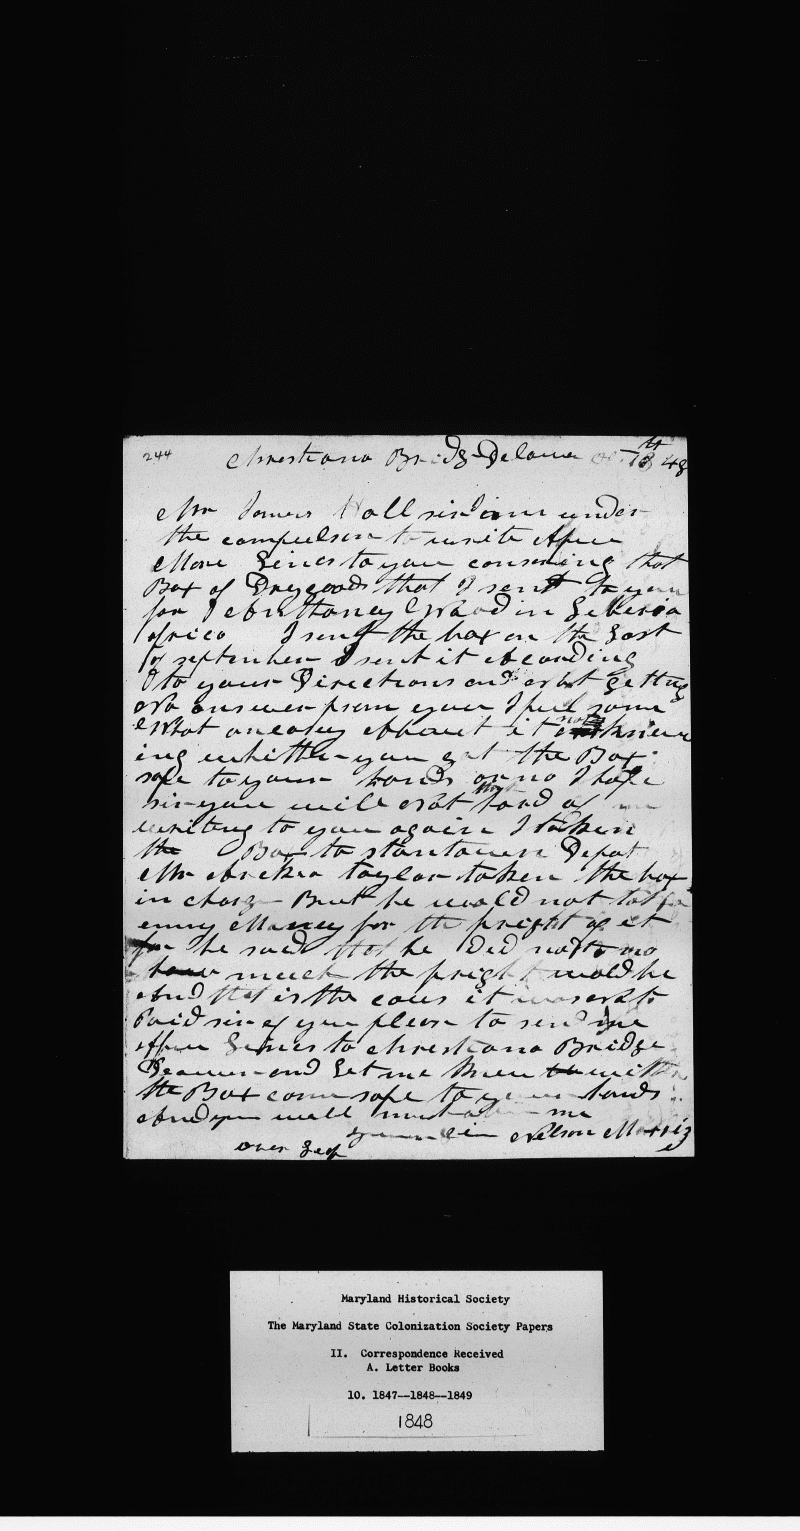 244
Christiana Bridg Delawer 13th 48
Mr James Hall sir i am under
the compulson to write A few
More Lines to you consening that
Box of Drygoods that I sent to you
for Wood in Liberia
Africa I sent the box on the Last
of september I sent it according
to your Directions and not getting
No answer from you I feel some
What oneasy about it not knowe
ing whither you get the Box
safe to your hands or no I hope
sir you will Not hard of
writing to you again I taken
the Box to stantown Depot
Mr taylor taken the box
in charg But he would not
enny Money for the freight of it
for he said that he Did not no
how much the freight would be
And that is the caus it was Not
Paid sir if you pleas to send me
A few Lines to Christiana Bridge
and Let me know
the Box come safe to your hands
And you will me
Nelson Morriz
over Leaf
Maryland Historical Society
The Maryland State Colonization Society Papers
II. Correspondence Received
A. Letter Books
10. 1847--1848--1849
1848